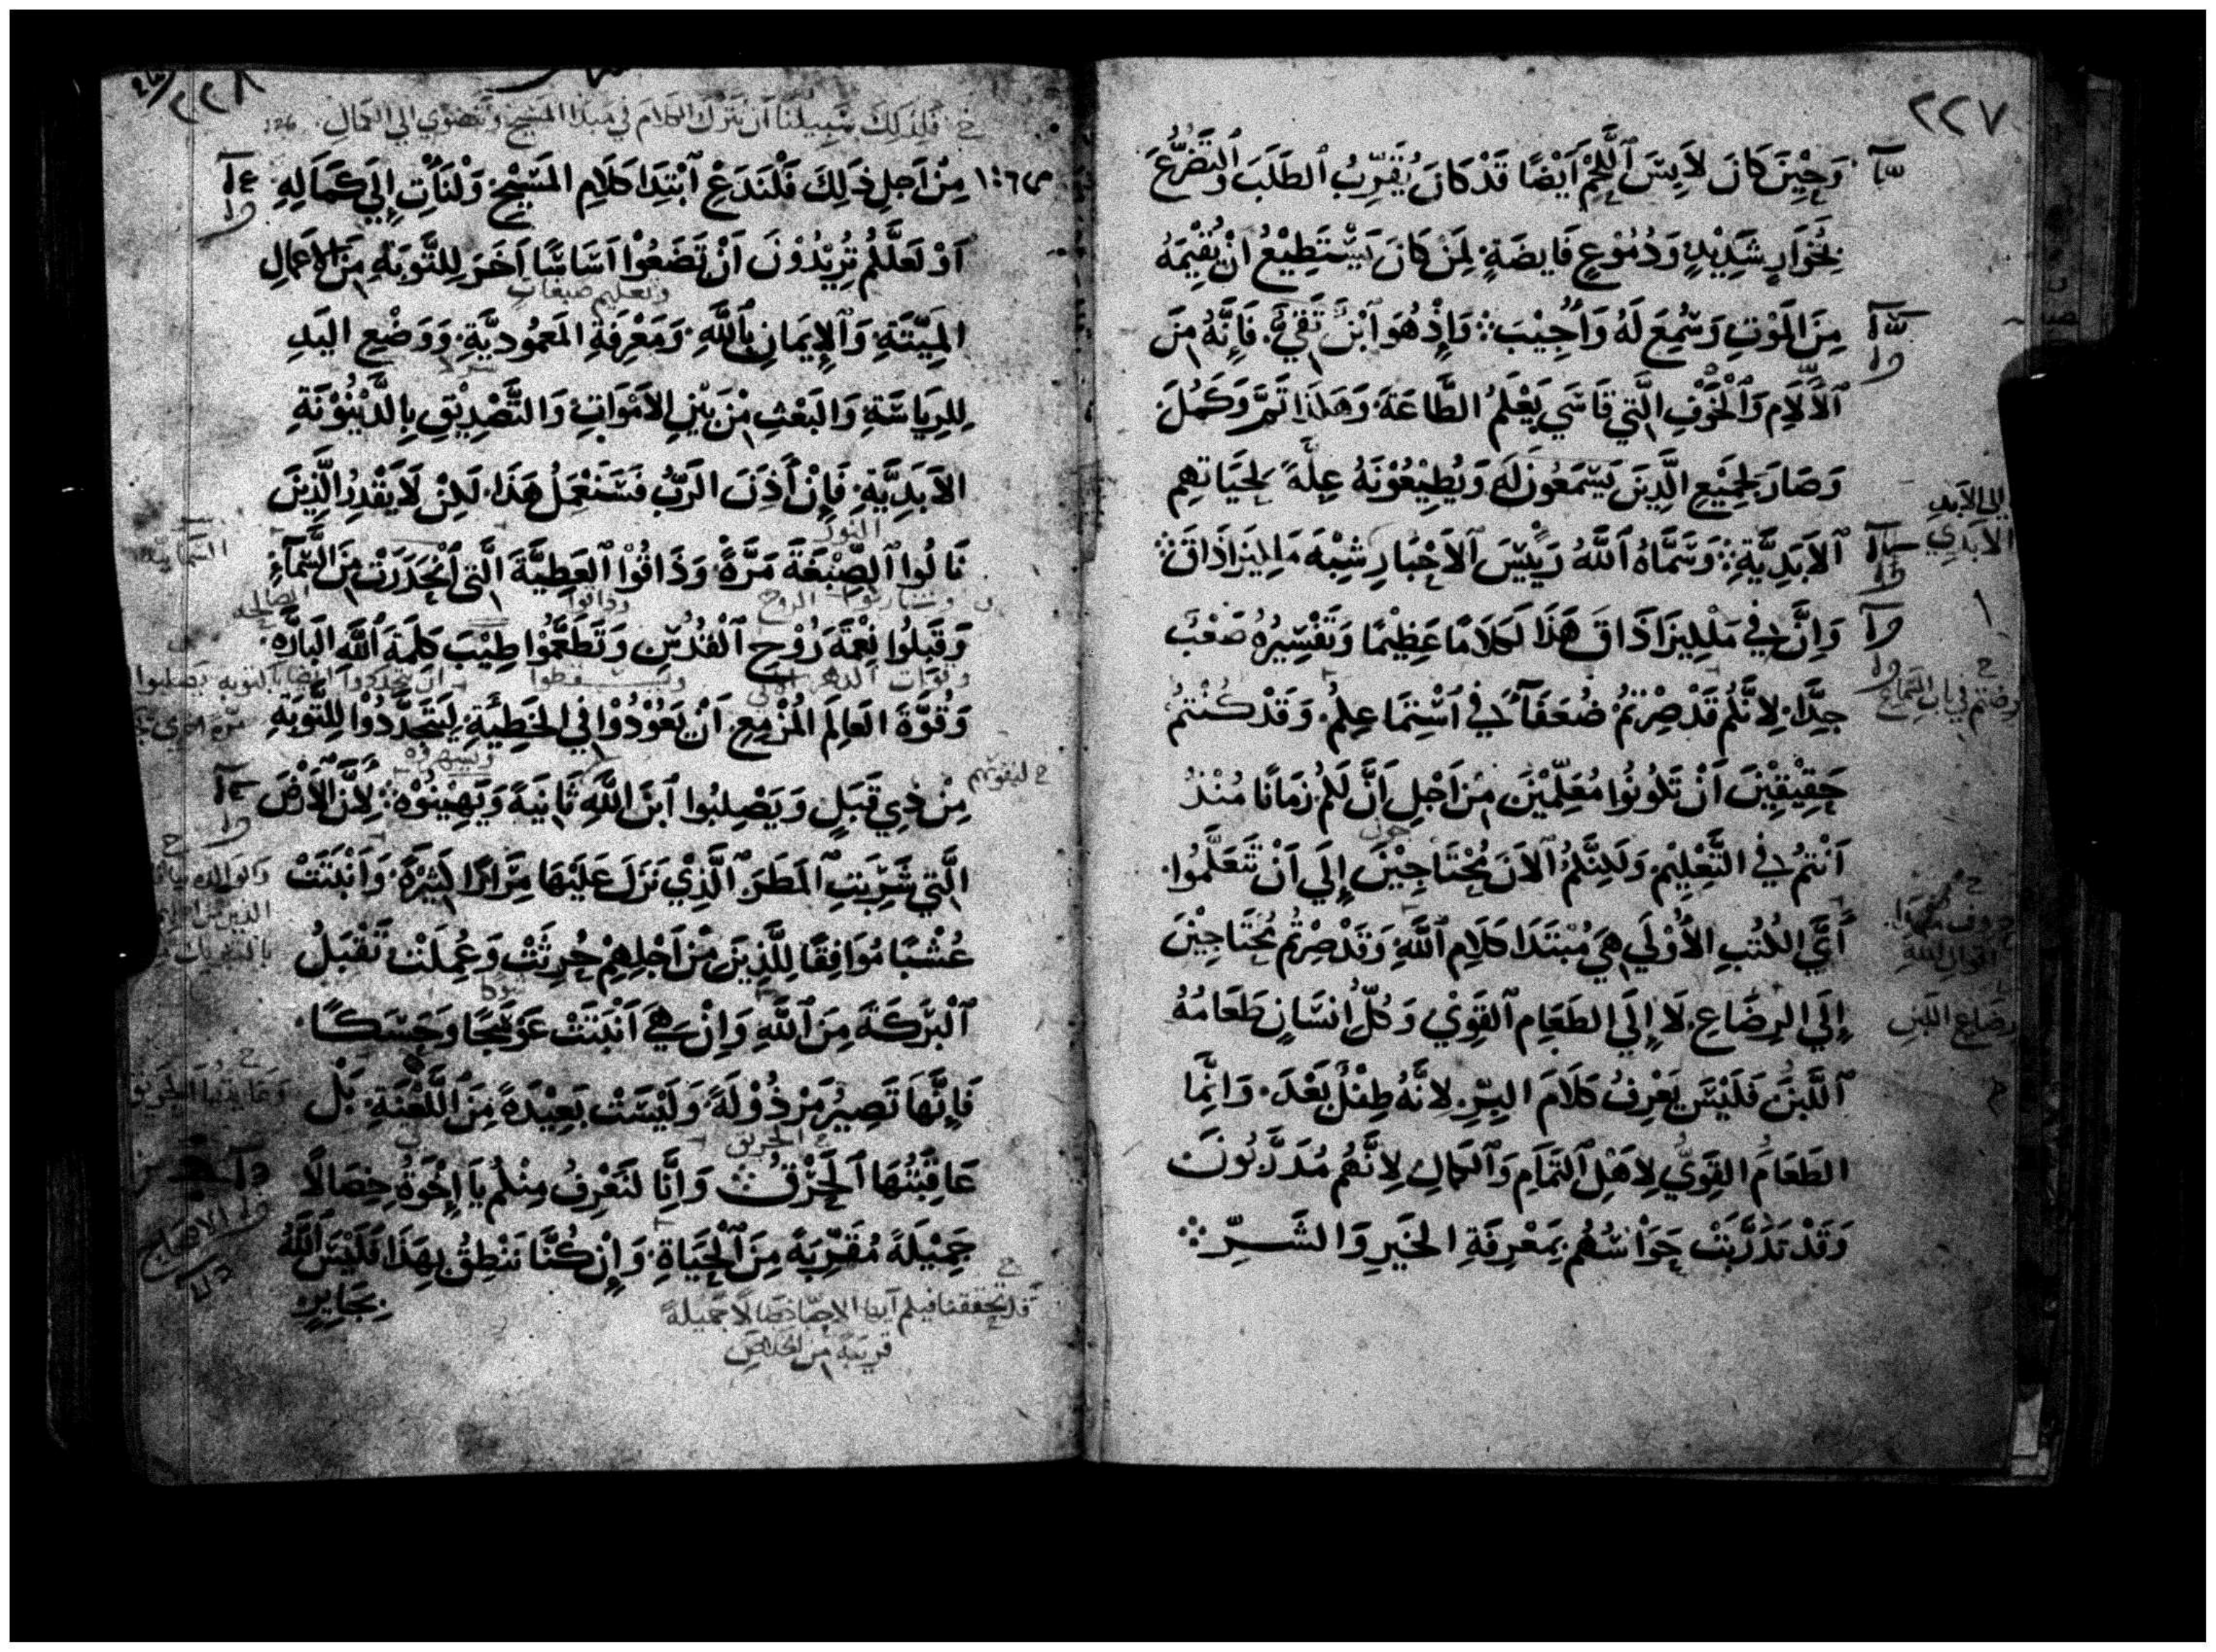 ٢٢٧
وَحِيْنَ كَانَ لاَبِسَ ٱللَّحْمِ اَيْضًا قَدْ كَانَ يُقَرِّبُ ٱلطَلَبَ وَٱلتَضَرُّعَ
بِخُوَارٍ شَدِيْدٍ وَدُمُوْعٍ فَايضَةٍ لِمَنْ كَانَ يَسْتَطِيْعُ اَنْ يُقِيْمَهُ
مِنَ المَوْتِ وَسُمِعَ لَهُ وَاُجِيْبَ ⁘ وَاِذْ هُوَ ٱبْنٌ تَقِيٌّ فَاِنَّهُ مِنَ
ٱلآلَامِ وَٱلْخَوْفِ الَّتِي قَاسَي يَعْلَمُ الطَّاعَةَ وَهَكَذَا تَمَّ وَكَمُلَ
وَصَارَ لِجَمِيْعِ الَّذِيْنَ يَسْمَعُونَ لَهُ وَيُطِيْعُوْنَهُ عِلَّةً لِحَيَاتِهِمِ
إلى الأبد
الأبدي
ٱلاَبَدِيَّةِ ⁘ وَسَمَّاهُ ٱللَّهُ رَيِيْسَ ٱلاَحْبَارِ شِبْهَ مَالِيزَاذَاقَ ⁘
وَاِنَّ فِي مَلْلِيزَاذَاقَ هَذَا لَكَلاَمًا عَظِيْمًا وَتَفْسِيْرُهُ صَعْبَ
جِدًّا لاِنَّكُمْ قَدْ صِرْتُمْ ضُعَفَآءً فِي اَسْتِمَاعِكُمْ وَقَدْ كُنْتُمْ
حَقِيْقِيْنَ اَنْ تَكُونُوا مُعَلِّمْيْنَ مِنْ اَجْلِ اَنَّ لَكُمْ زَمَانًا مُنْذُ
اَنْتُمْ فِي التَّعْلِيْمِ وَلَكِنَّكُمُ ٱلاَنَ مُحْتَاجِيْنَ إِلَي اَنْ تَتَعَلَّمُوا
اَيَّ الكُتُبِ الأُوْلَي هِيَ مُبْتَدَا كَلاَمِ ٱللَّهِ وَقَدْ صِرْتُمْ مُحْتَاجِيْنَ
إِلَي الرِضَاعِ لاَ إِلَي الطَعَامِ ٱلقَوِيْ وَكُلُّ اِنسَانٍ طَعَامُهُ
رضاع اللبن
ٱللَّبَنُ فَلَيْسَ يَعْرِفُ كَلاَمَ البِرِّ لاَنَّهُ طِفْلٌ بَعْدَ وَاِنَّمَا
الطَعَامُ القَوِيُّ لاَهْلِ ٱلتَمَامِ وَٱلكَمَالِ لاِنَّهُمْ مُدَرَّبُونَ
وَقَدْ تَدَرَّبَتْ حَوَاسُّهُمْ بِمَعْرِفَةِ الخَيرِ وَالشَرِّ ⁘
٢٢٨
فلذلك سبيلنا أن نترك الكلام في مبدا المسيح ونمضوي إلى الكمال
ص ٦ : ١
مِنْ اَجلِ ذَلِكَ فَلْنَدَعْ ٱبْتِدَا كَلاَمِ المَسِيْحِ وَلْنَأْتِ إِلَي كَمَالِهِ
اَوْ لَعَلَّكُمْ تُرِيْدُوْنَ اَنْ تَضَعُوْا اَسَاسًا اَخَرَ لِلتَّوبَةِ مِنَ الاعمالِ
وتعليم صبغات
المَيِّتَةِ وَٱلإِيمَانِ بِٱللَّهِ وَمَعْرِفَةِ المَعمُودِيَّةِ وَوَضْعِ اليَدِ
لِلرِيَاسَةِ وَالبَعْثِ مِنْ بَيْنِ الاَمْوَاتِ وَالتَّصْدِيْقِ بِالدَّيْنُوْنَةِ
الاَبَدِيَّةِ فَاِنْ أَذِنَ الرَبُّ فَسَنَعْمَلُ هَذَا لَكِنْ لاَ يَقْدِرُ الَّذِيْنَ
النور
نَالُوا ٱلصِّبْغَةَ مَرَّةً وَذَاقُوْا ٱلعَطِيَّةَ الَّتِي ٱنْحَدَرَتْ مِنَ السَّمَآءِ
وَقَبِلُوا نِعْمَةَ رُوْحِ ٱلْقُدُسِ وَتَطَعَّمُوْا طِيْبَ كَلِمَةِ ٱللَّهِ البَارَّةِ
وَقُوَّةَ العَالَمِ المُزْمِعِ اَنْ يَعُوْدُوْا فِي الخَطِيَّةِ لِيَتَجَدَّدُوْا لِلتَّوبَةِ
مِنْ ذِي قَبَلٍ وَيَصْلِبُوا ٱبْنَ اللَّهِ ثَانِيَةً وَيَهِيْنُوْهُ ⁘ لاَنَّ ٱلاَرْضَ
الَّتِي شَرِبَتِ ٱلمَطَرَ ٱلَّذِيْ نَزَلَ عَلَيْهَا مِرَارًا كَثِيْرَةً وَاَنْبَتَتْ
عُشْبًا مُوَافِقًا لِلَّذِيْنَ مِنْ اَجْلِهِمْ حُرِثَتْ وَعُمِلَتْ تَقْبَلُ
شوكا
ٱلْبَرَكَةَ مِنَ ٱللَّهِ وَاِنْ هِيَ اَنْبَتَتْ عَوْسَجًا وَحَسَكًا
فَاِنَّهَا تَصِيْرُ مَرْذُوْلَةً وَلَيْسَتْ بَعِيْدَةً مِنَ ٱللَّعْنَةِ بَلْ
الحريق
عَاقِبَتُهَا ٱلحَرْقُ ⁘ وَاِنَّا لَنَعْرِفُ مِنْكُمْ يَا إِخْوَةُ خِصَالاً
جَمِيْلَةً مُقَرِّبَةً مِنَ ٱلْحَيَاةِ وَاِنْ كُنَّا نَنْطِقُ بِهَذَا فَلَيْسَ ٱللَّهُ
بِجَايِرٍ
قد تحققنا فيكم أيها الاحبا خصالا جميلة
قريبة من الخلاص